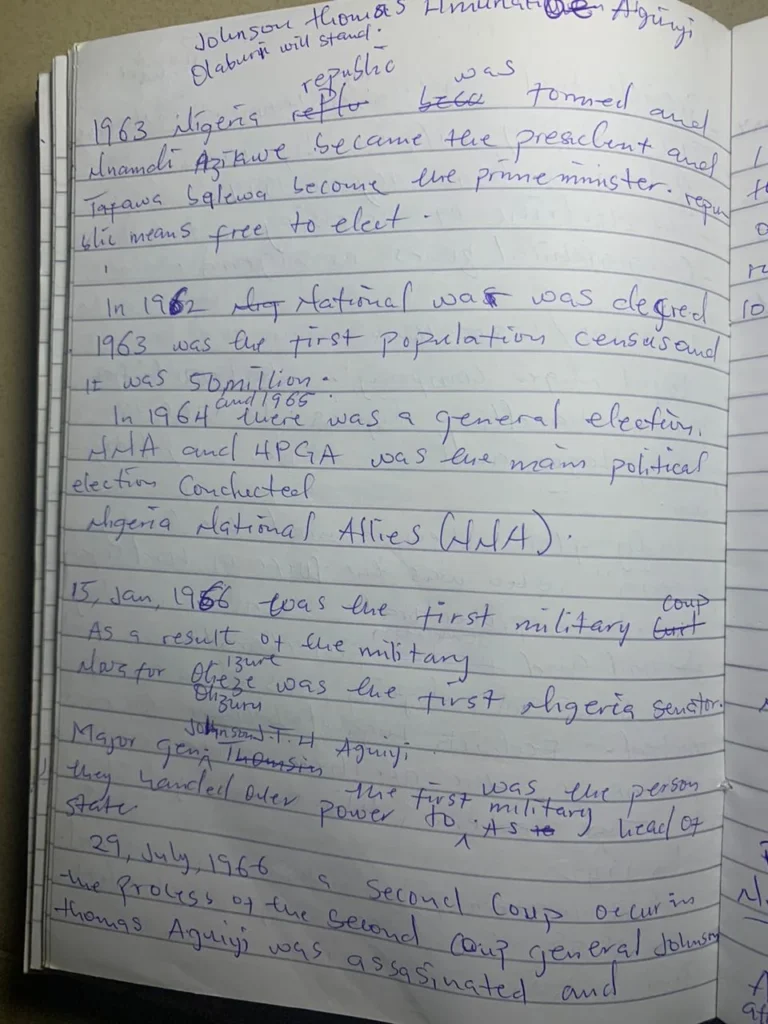 Johnson thomas Aguiyi
Olaburi will stand.
republic was
1963 Nigeria formed and
Nnamdi Azikwe became the president and
Tafawa balewa become the primeminister. repu
blic means free to elect.
In 1962 National was was
1963 was the first population census and
It was 50 million.
and 1965
In 1964 there was a general election.
NNA and UPGA was the main political
election Conducted
Nigeria National Allies (NNA).
15, Jan, 1966 was the first military coup
As a result of the military
was the first Nigeria senator.
Major gen Johnson J.T.H Aguiyi was the person
they handed over power to the first military As head of
state.
29, July, 1966 a second Coup occur in
the process of the second coup general Johnson
thomas Aguiyi was assasinated and